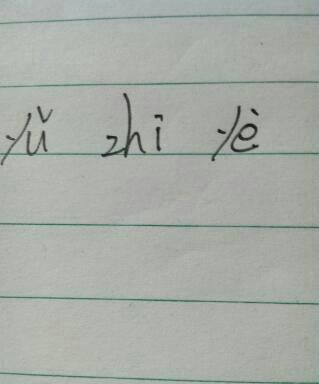 yǔ zhī yè